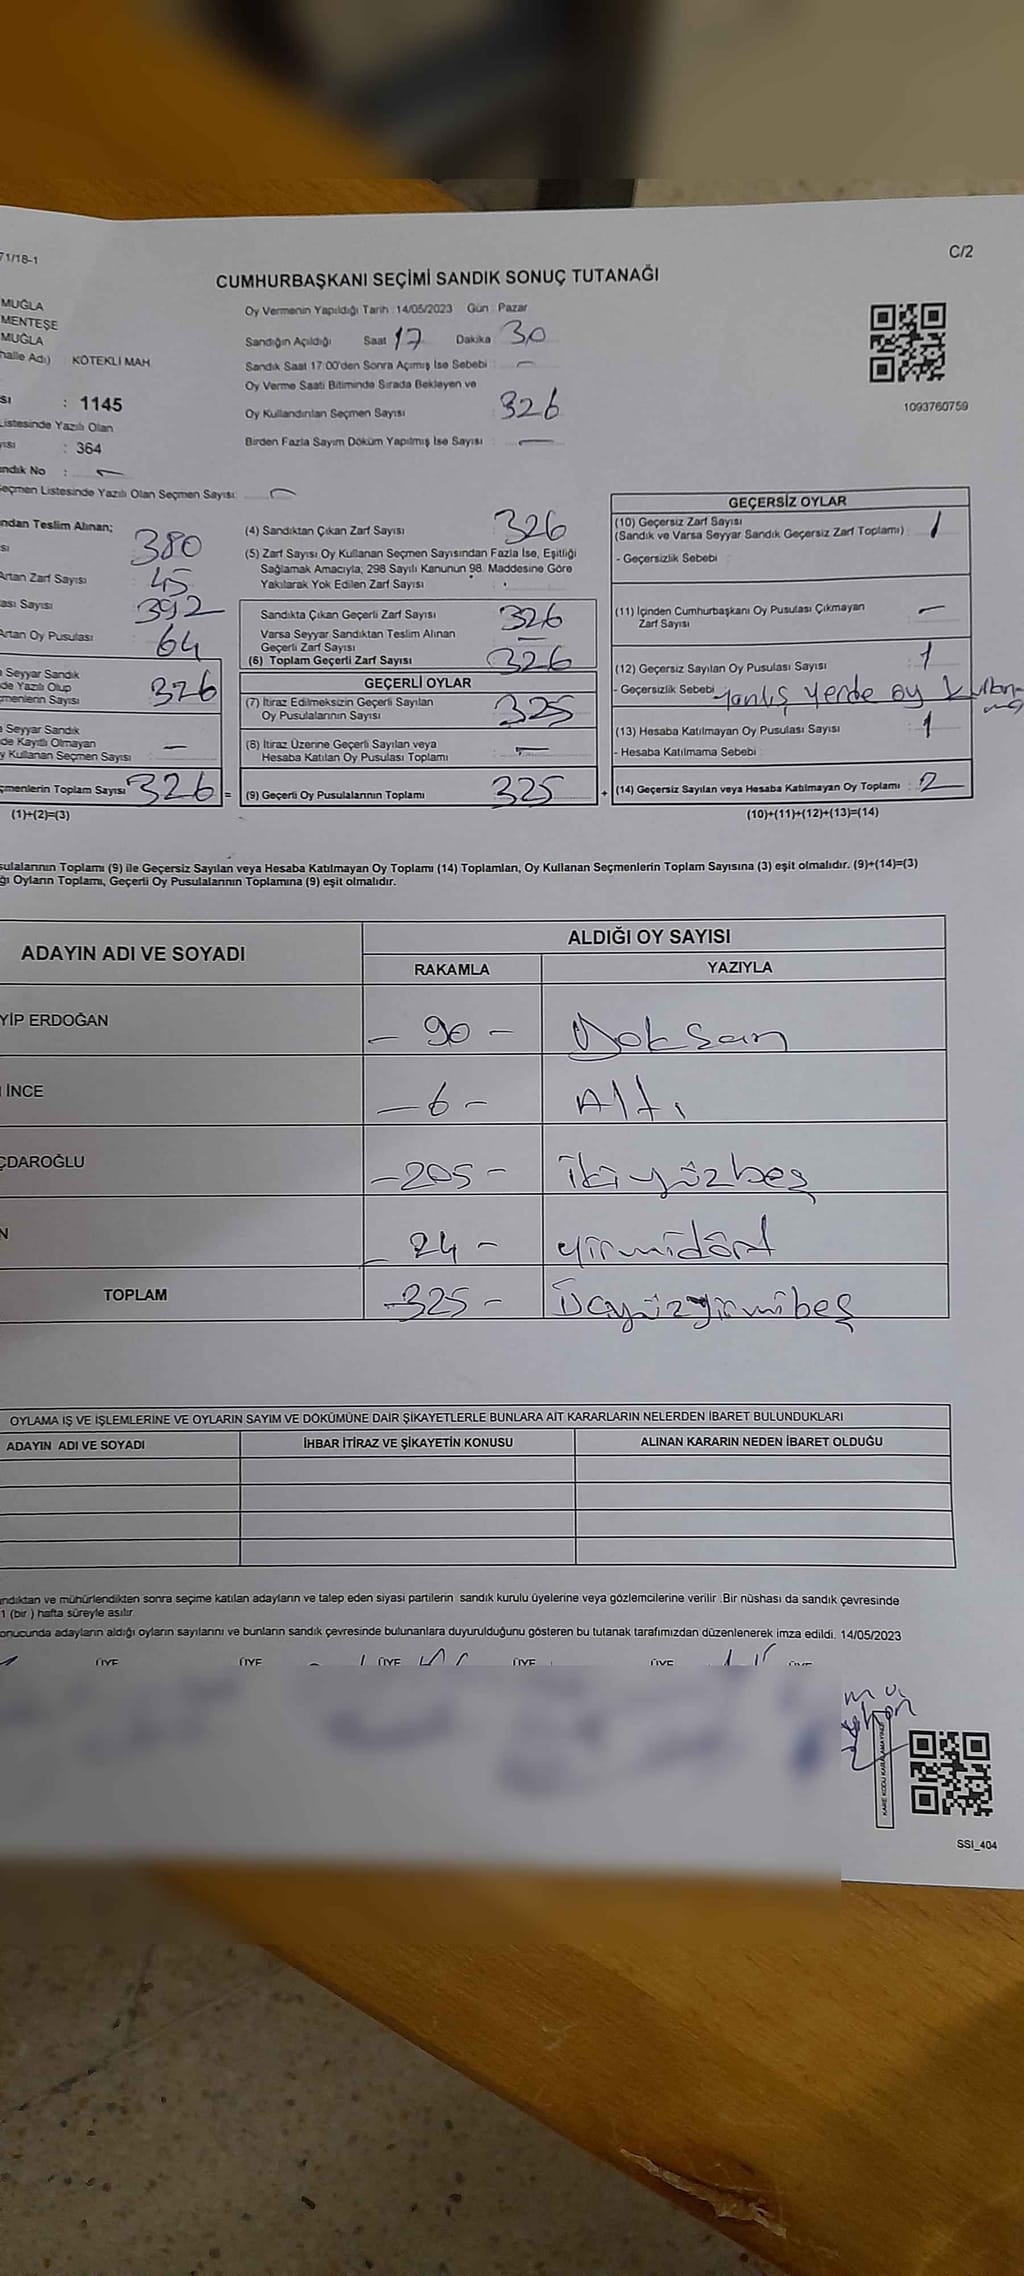 71/18-1
C/2
CUMHURBAŞKANI SEÇİMİ SANDIK SONUÇ TUTANAĞI
MUĞLA
MENTEŞE
MUĞLA
halle Adı) KÖTEKLİ MAH
sı : 1145
Listesinde Yazılı Olan
yısı : 364
andık No : -
Seçmen Listesinde Yazılı Olan Seçmen Sayısı: -
Oy Vermenin Yapıldığı Tarih : 14/05/2023 Gün : Pazar
Sandığın Açıldığı Saat 17 Dakika 30
Sandık Saat 17:00'den Sonra Açımış İse Sebebi : -
Oy Verme Saati Bitiminde Sırada Bekleyen ve
Oy Kullandırılan Seçmen Sayısı : 326
Birden Fazla Sayım Döküm Yapılmış İse Sayısı : -
1093760759
ından Teslim Alınan;
sı 380
Artan Zarf Sayısı : 45
ası Sayısı 392
Artan Oy Pusulası : 64
a Seyyar Sandık
de Yazılı Olup
çmenlerin Sayısı 326
a Seyyar Sandık
de Kayıtlı Olmayan
y Kullanan Seçmen Sayısı -
çmenlerin Toplam Sayısı 326 =
(1)+(2)=(3)
(4) Sandıktan Çıkan Zarf Sayısı 326
(5) Zarf Sayısı Oy Kullanan Seçmen Sayısından Fazla İse, Eşitliği
Sağlamak Amacıyla; 298 Sayılı Kanunun 98. Maddesine Göre
Yakılarak Yok Edilen Zarf Sayısı :
Sandıkta Çıkan Geçerli Zarf Sayısı 326
Varsa Seyyar Sandıktan Teslim Alınan
Geçerli Zarf Sayısı -
(6) Toplam Geçerli Zarf Sayısı 326
GEÇERLİ OYLAR
(7) İtiraz Edilmeksizin Geçerli Sayılan
Oy Pusulalarının Sayısı 325
(8) İtiraz Üzerine Geçerli Sayılan veya
Hesaba Katılan Oy Pusulası Toplamı : -
(9) Geçerli Oy Pusulalarının Toplamı 325 +
GEÇERSİZ OYLAR
(10) Geçersiz Zarf Sayısı
(Sandık ve Varsa Seyyar Sandık Geçersiz Zarf Toplamı) : 1
- Geçersizlik Sebebi :
(11) İçinden Cumhurbaşkanı Oy Pusulası Çıkmayan
Zarf Sayısı : -
(12) Geçersiz Sayılan Oy Pusulası Sayısı : 1
- Geçersizlik Sebebi Yanlış yerde oy kullan
(13) Hesaba Katılmayan Oy Pusulası Sayısı : 1
- Hesaba Katılmama Sebebi :
(14) Geçersiz Sayılan veya Hesaba Katılmayan Oy Toplamı : 2
(10)+(11)+(12)+(13)=(14)
sulalarının Toplamı (9) ile Geçersiz Sayılan veya Hesaba Katılmayan Oy Toplamı (14) Toplamları, Oy Kullanan Seçmenlerin Toplam Sayısına (3) eşit olmalıdır. (9)+(14)=(3)
ğı Oyların Toplamı, Geçerli Oy Pusulalarının Toplamına (9) eşit olmalıdır.
ADAYIN ADI VE SOYADI
ALDIĞI OY SAYISI
RAKAMLA YAZIYLA
YİP ERDOĞAN - 90 - Doksan
İNCE - 6 - Altı
ÇDAROĞLU - 205 - ikiyüzbeş
N - 24 - yirmidört
TOPLAM - 325 - Üçyüzyirmibeş
OYLAMA İŞ VE İŞLEMLERİNE VE OYLARIN SAYIM VE DÖKÜMÜNE DAİR ŞİKAYETLERLE BUNLARA AİT KARARLARIN NELERDEN İBARET BULUNDUKLARI
ADAYIN ADI VE SOYADI İHBAR İTİRAZ VE ŞİKAYETİN KONUSU ALINAN KARARIN NEDEN İBARET OLDUĞU
ndıktan ve mühürlendikten sonra seçime katılan adayların ve talep eden siyasi partilerin sandık kurulu üyelerine veya gözlemcilerine verilir .Bir nüshası da sandık çevresinde
1 (bir ) hafta süreyle asılır
onucunda adayların aldığı oyların sayılarını ve bunların sandık çevresinde bulunanlara duyurulduğunu gösteren bu tutanak tarafımızdan düzenlenerek imza edildi. 14/05/2023
ÜYE ÜYE ÜYE ÜYE ÜYE ÜYE
KARE KODU KARALAMAYINIZ
SSI_404